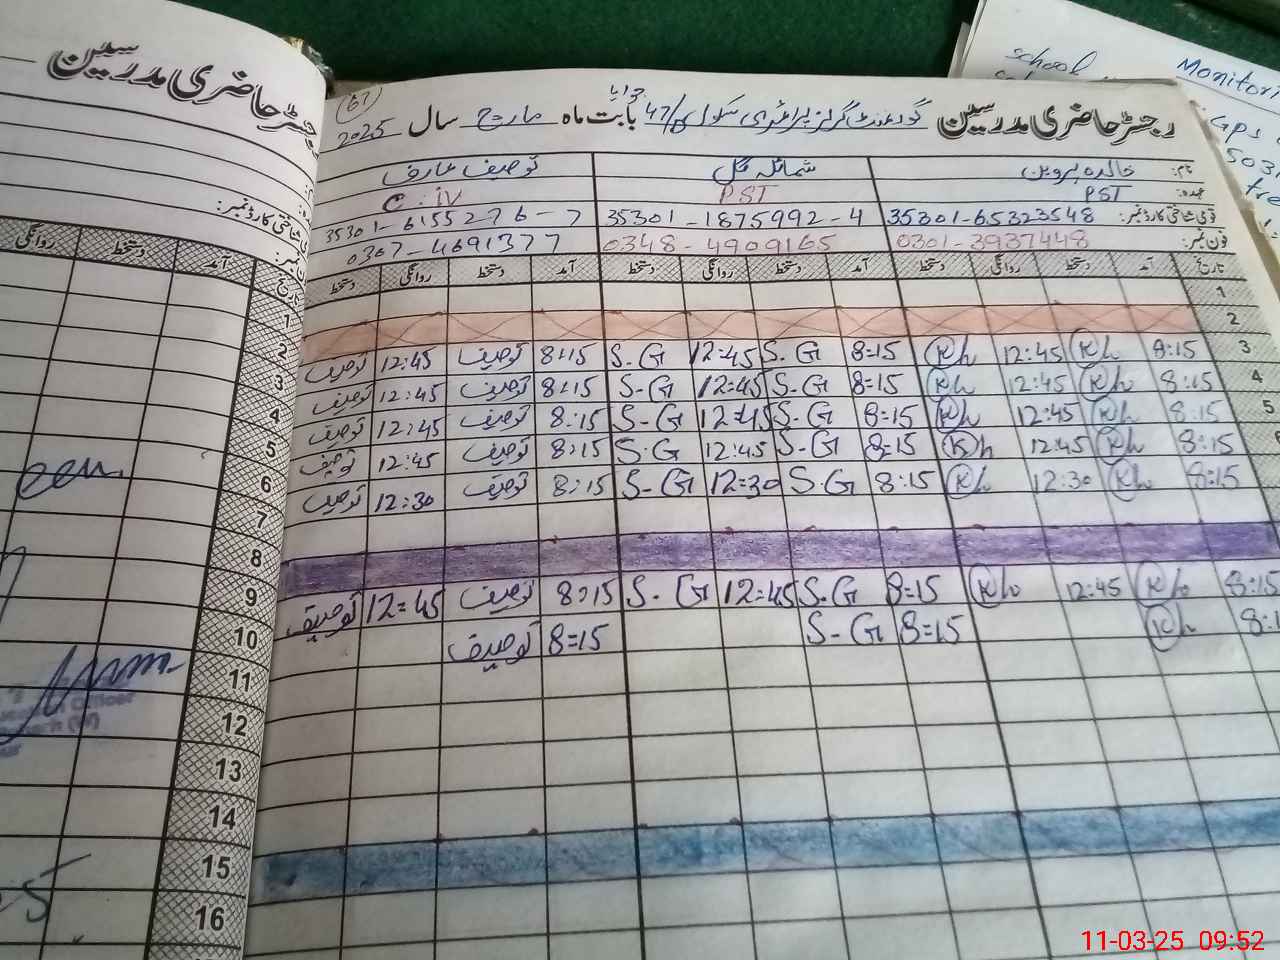 رجسٹر حاضری مدرسین
رجسٹر حاضری مدرسین گورنمنٹ گرلز پرائمری سکول 47/ بابت ماہ مارچ سال 2025
(67)
نام: خالدہ پروین شمائلہ گل توصیف عارف
عہدہ: PST PST C.iv
قومی شناختی کارڈ نمبر: 35301-65323548 35301-1875992-4 35301-6155276-7
فون نمبر: 0301-3937448 0348-4909165 0307-4691377
تاریخ آمد دستخط روانگی دستخط آمد دستخط روانگی دستخط آمد دستخط روانگی دستخط
1
2
3 8:15 Kh 12:45 Kh 8=15 S.G 12:45 S.G 8:15 توصیف 12:45 توصیف
4 8:15 Kh 12:45 Kh 8=15 S.G 12=45 S-G 8:15 توصیف 12:45 توصیف
5 8:15 Kh 12:45 Kh 8=15 S.G 12=45 S-G 8:15 توصیف 12:45 توصیف
8:15 Kh 12:45 Kh 8=15 S.G 12:45 S.G 8:15 توصیف 12:45 توصیف
8:15 Kh 12:30 Kh 8:15 S.G 12=30 S-G 8:15 توصیف 12:30 توصیف
8:15 Kh 12:45 Kh 8=15 S.G 12=45 S.G 8:15 توصیف 12=45 توصیف
Kh 8=15 S-G 8=15 توصیف
آمد دستخط روانگی
تاریخ
1
2
3
4
5
6
7
8
9
10
11
12
13
14
15
16
school
Monitori
GPS
503
tre
11-03-25 09:52